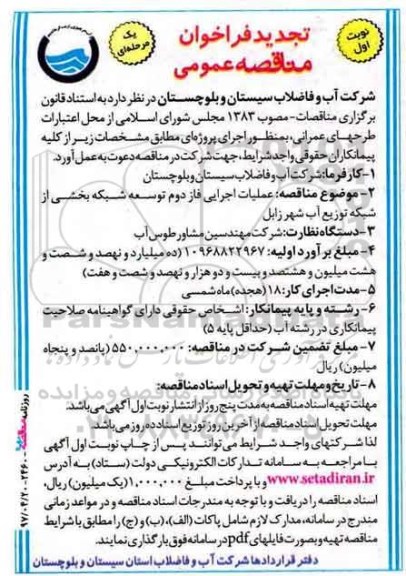 نوبت اول
تجدید فراخوان
مناقصه عمومی
یک مرحله‌ای
شرکت آب و فاضلاب سیستان و بلوچستان در نظر دارد به استناد قانون
برگزاری مناقصات - مصوب ۱۳۸۳ مجلس شورای اسلامی از محل اعتبارات
طرحهای عمرانی، بمنظور اجرای پروژه‌ای مطابق مشخصات زیر از کلیه
پیمانکاران حقوقی واجد شرایط، جهت شرکت در مناقصه دعوت به عمل آورد.
۱- کارفرما: شرکت آب و فاضلاب سیستان و بلوچستان
۲- موضوع مناقصه: عملیات اجرایی فاز دوم توسعه شبکه بخشی از
شبکه توزیع آب شهر زابل
۳- دستگاه نظارت: شرکت مهندسین مشاور طوس آب
۴- مبلغ برآورد اولیه: ۱۰۹۶۸۸۲۲۹۶۷ (ده میلیارد و نهصد و شصت و
هشت میلیون و هشتصد و بیست و دو هزار و نهصد و شصت و هفت)
۵- مدت اجرای کار: ۱۸ (هجده) ماه شمسی
۶- رشته و پایه پیمانکار: اشخاص حقوقی دارای گواهینامه صلاحیت
پیمانکاری در رشته آب (حداقل پایه ۵)
۷- مبلغ تضمین شرکت در مناقصه: ۵۵۰,۰۰۰,۰۰۰ (پانصد و پنجاه
میلیون) ریال
۸- تاریخ و مهلت تهیه و تحویل اسناد مناقصه:
مهلت تهیه اسناد مناقصه به مدت پنج روز از انتشار نوبت اول آگهی می باشد.
مهلت تحویل اسناد مناقصه از آخرین روز توزیع اسناد ده روز می باشد.
لذا شرکتهای واجد شرایط می توانند پس از چاپ نوبت اول آگهی
با مراجعه به سامانه تدارکات الکترونیکی دولت (ستاد) به آدرس
www.setadiran.ir و با پرداخت مبلغ ۱,۰۰۰,۰۰۰ (یک میلیون) ریال،
اسناد مناقصه را دریافت و با توجه به مندرجات اسناد مناقصه و در مواعد زمانی
مندرج در سامانه، مدارک لازم شامل پاکات (الف)، (ب) و (ج) را مطابق با شرایط
مناقصه تهیه و بصورت فایلهای pdf در سامانه فوق بارگذاری نمایند.
دفتر قراردادها شرکت آب و فاضلاب استان سیستان و بلوچستان